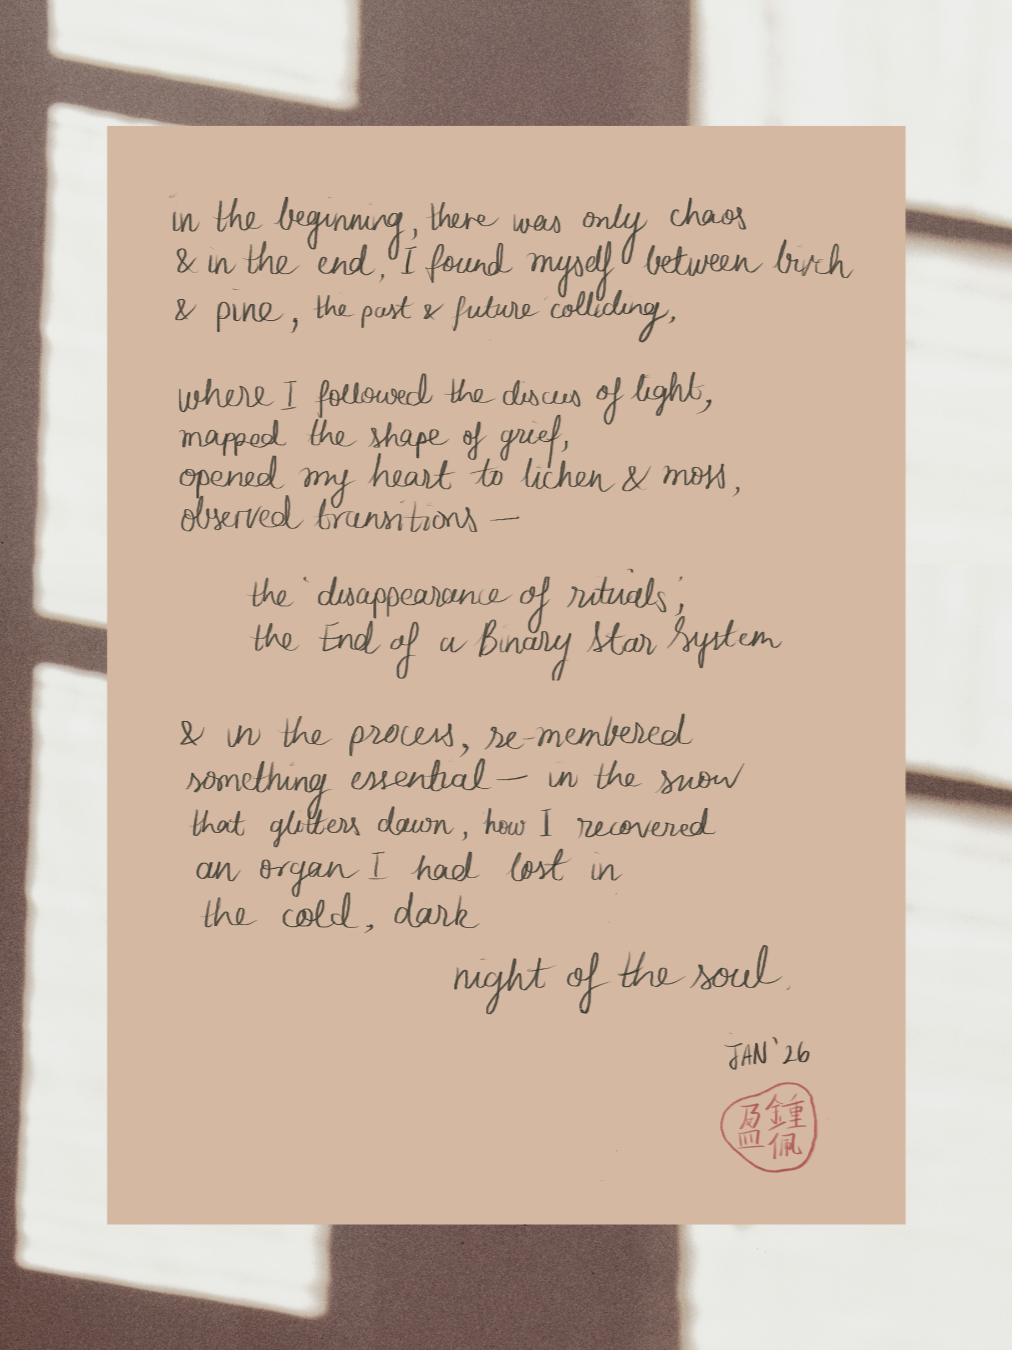 in the beginning, there was only chaos
& in the end, I found myself between birch
& pine, the past & future colliding,
where I followed the discus of light,
mapped the shape of grief,
opened my heart to lichen & moss,
observed transitions —
the 'disappearance of rituals',
the End of a Binary Star System
& in the process, re-membered
something essential — in the snow
that glitters dawn, how I recovered
an organ I had lost in
the cold, dark
night of the soul.
JAN '26
鍾佩盈